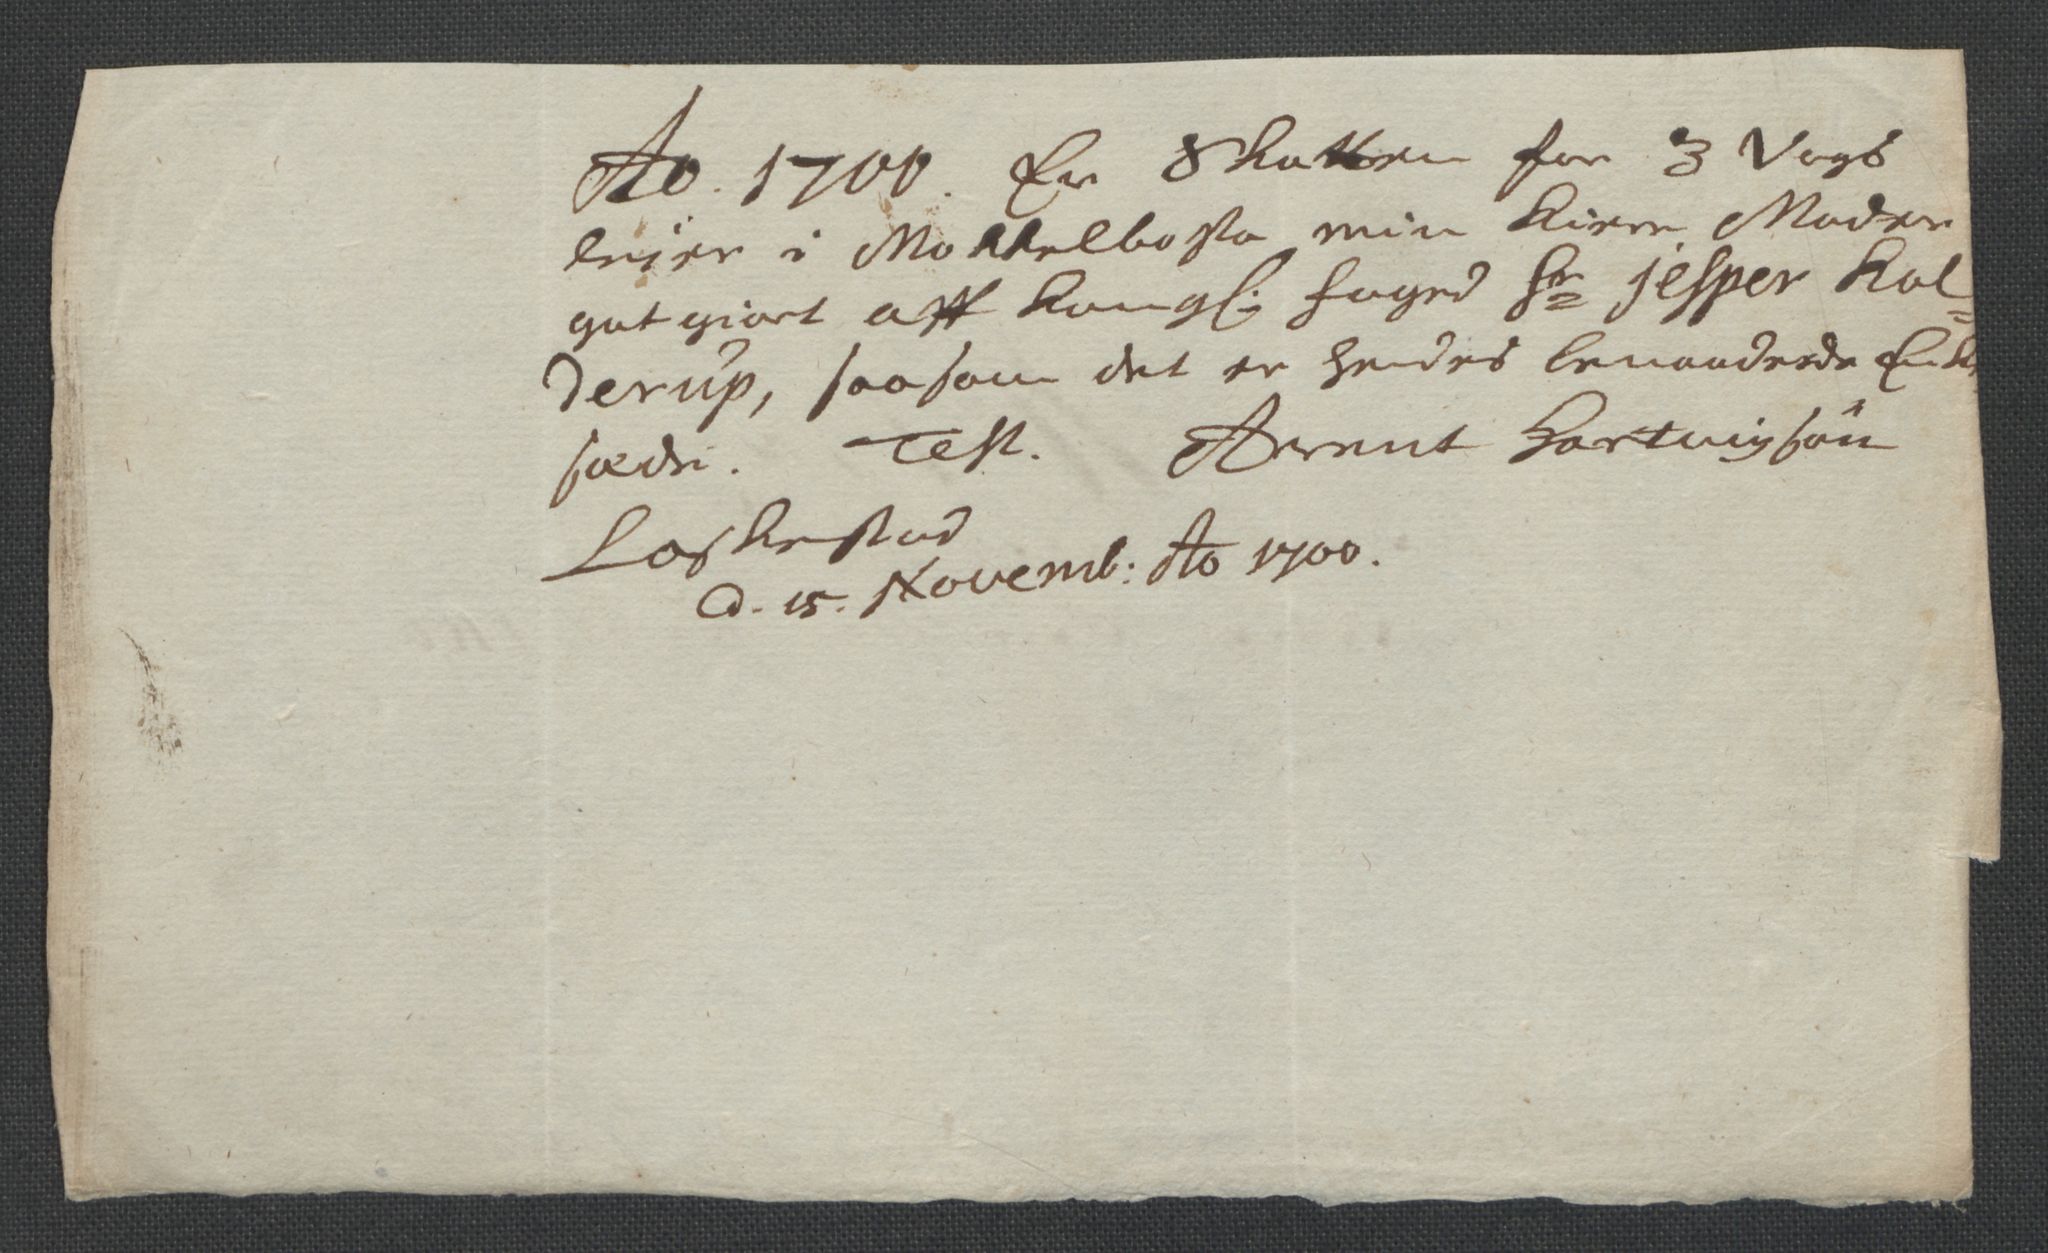 Ao. 1700. Er Skatten for 3 Vogs
leyer i Mokkelbosta min kiere Moder
got giort aff kongl: foged Hr Jesper Kol=
derup, saasom det er hendes benaadede Encke
sæde. Test. Arent Hartwigsøn
Loskestad
d. 15. Novemb: Ao 1700.